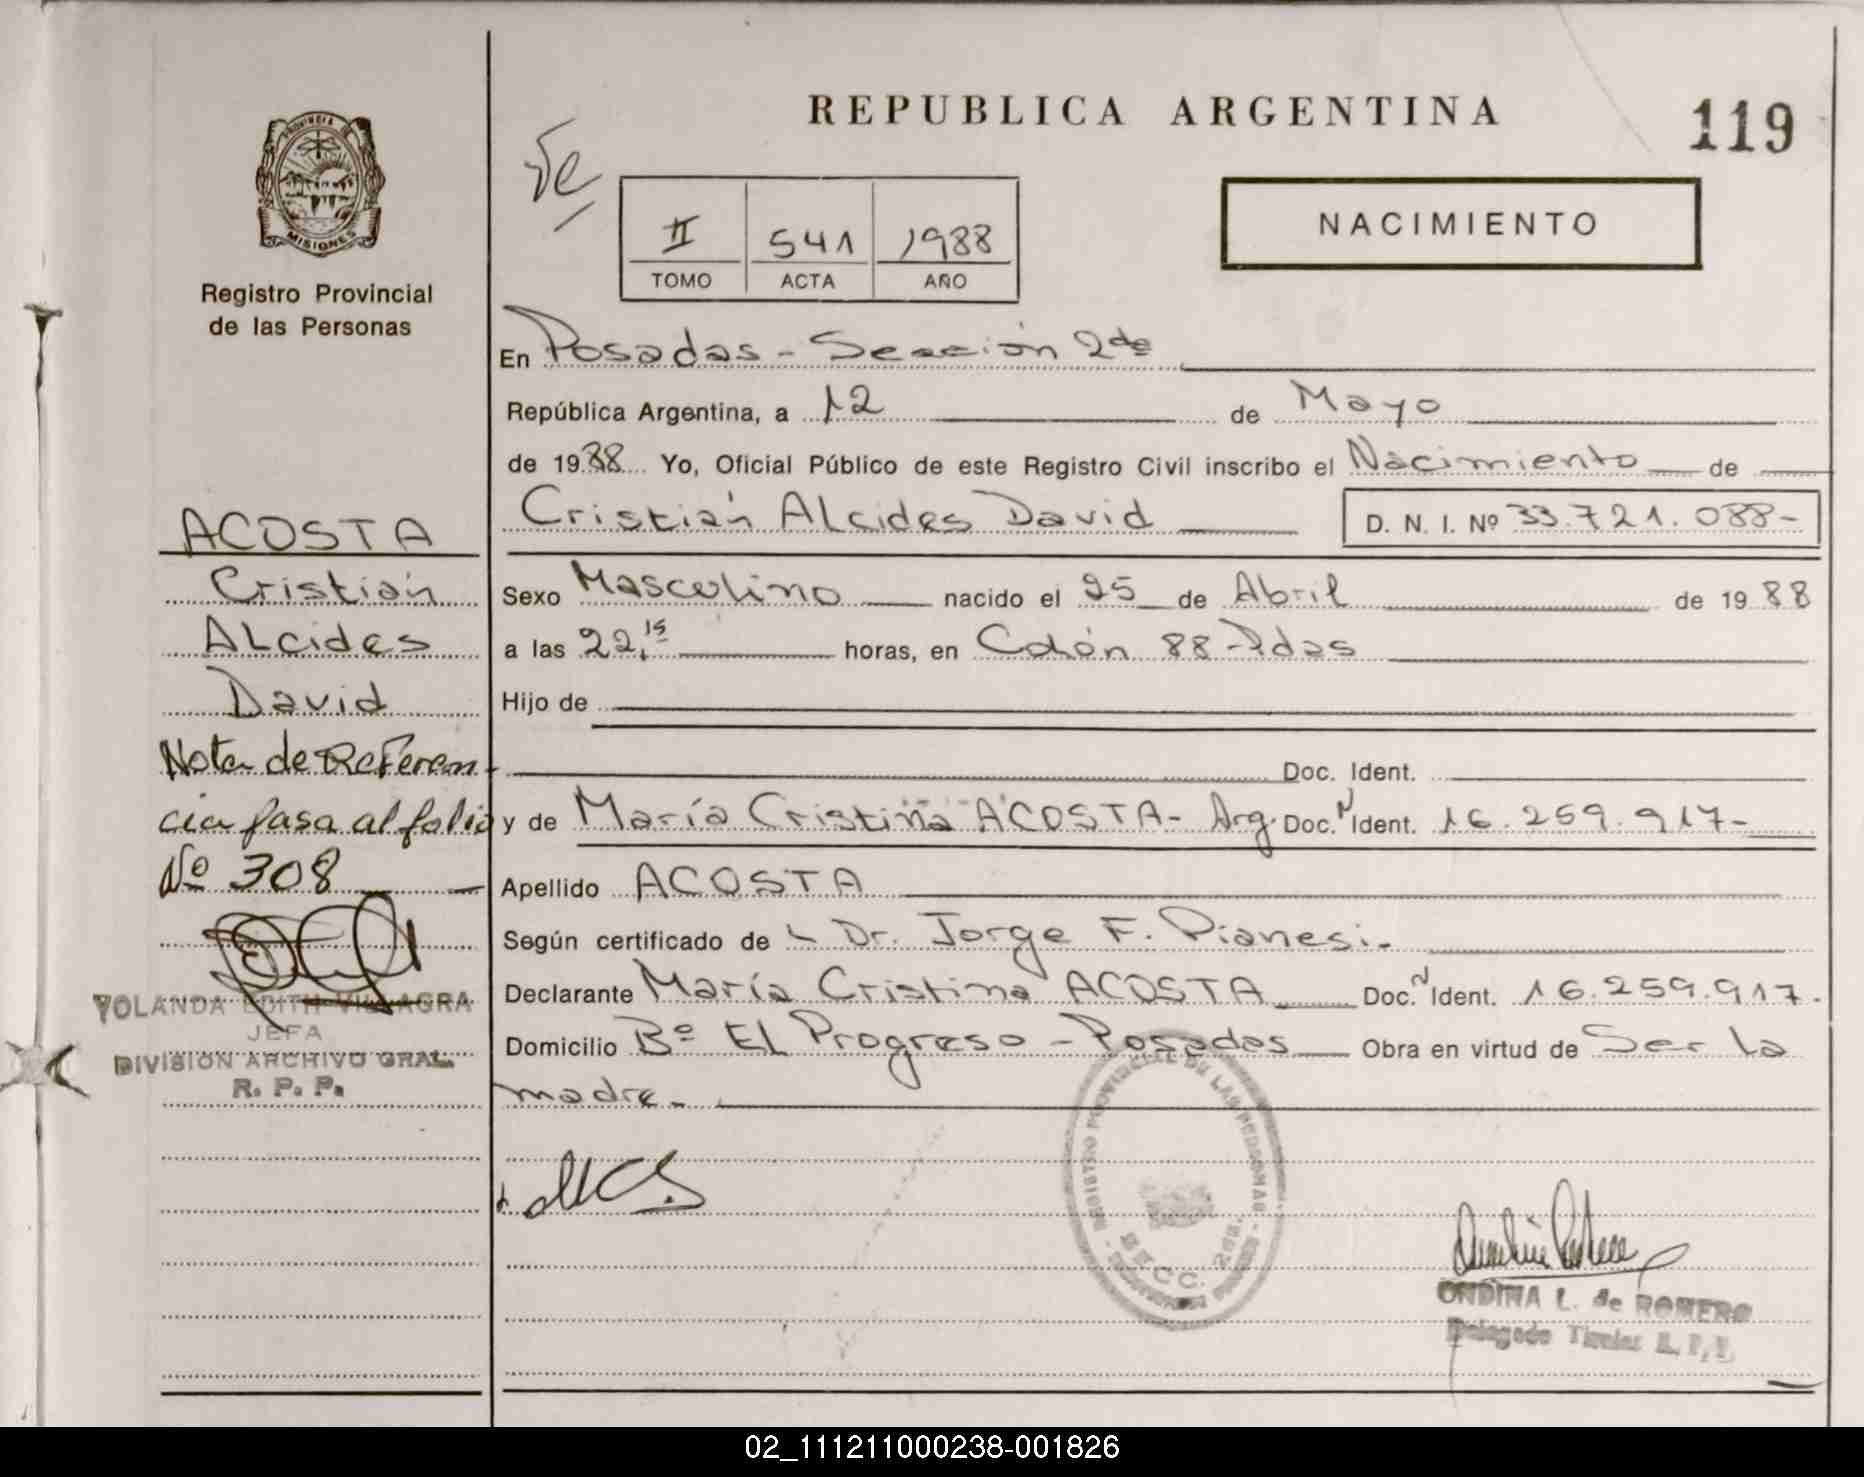 REPUBLICA ARGENTINA
119
PROVINCIA DE
MISIONES
Registro Provincial
de las Personas
II 541 1988
TOMO ACTA AÑO
NACIMIENTO
En Posadas - Sección 2da
República Argentina, a 12 de Mayo
de 1988 Yo, Oficial Público de este Registro Civil inscribo el Nacimiento de
Cristián Alcides David D. N. I. Nº 33.721.088-
Sexo Masculino nacido el 25 de Abril de 1988
a las 22,15 horas, en Colón 88-Pdas
Hijo de
Doc. Ident.
y de María Cristina ACOSTA- Arg. Doc. N Ident. 16.259.917-
Apellido ACOSTA
Según certificado de Dr. Jorge F. Pianesi.
Declarante María Cristina ACOSTA Doc. N Ident. 16.259.917.
Domicilio Bº El Progreso - Posadas Obra en virtud de Ser la
madre.
ACOSTA
Cristián
Alcides
David
Nota de Referen
cia pasa al folio
Nº 308
YOLANDA EDITH VILLAGRA
JEFA
DIVISION ARCHIVO GRAL.
R. P. P.
REGISTRO PROVINCIAL DE LAS PERSONAS
SECC. 2da.
ONDINA L. de ROMERO
Delegado Titular R. P. P.
02_111211000238-001826